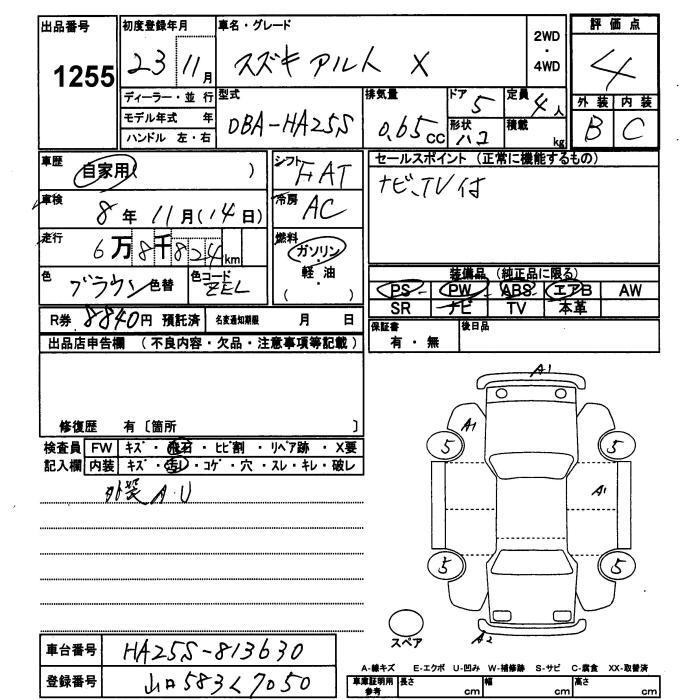 出品番号 1255
初度登録年月 23 11月
車名・グレード スズキ アルト X
2WD・4WD
評価点 4
ディーラー・並行
モデル年式 年
ハンドル 左・右
型式 DBA-HA25S
排気量 0.65cc
ドア 5
形状 ハコ
定員 4人
積載 kg
外装 B 内装 C
車歴 自家用( )
車検 8年 11月(14日)
走行 6万8千824km
色 ブラウン 色替 色コード ZEL
シフト FAT
冷房 AC
燃料 ガソリン・軽油( )
セールスポイント (正常に機能するもの)
ナビ、TV付
装備品 (純正品に限る)
PS PW ABS エアB AW
SR ナビ TV 本革
R券 8840円 預託済 名変通知期限 月 日
保証書 有・無 後日品
出品店申告欄 (不良内容・欠品・注意事項等記載)
修復歴 有〔箇所 〕
検査員記入欄
FW キズ・飛石・ヒビ割・リペア跡・X要
内装 キズ・汚レ・コゲ・穴・スレ・キレ・破レ
外装 A.U
A1
A1
5 5
A1
5 5
スペア
A2
車台番号 HA25S-813630
登録番号 山口 583 く 7050
A-線キズ E-エクボ U-凹み W-補修跡 S-サビ C-腐食 XX-取替済
車庫証明用参考 長さ cm 幅 cm 高さ cm